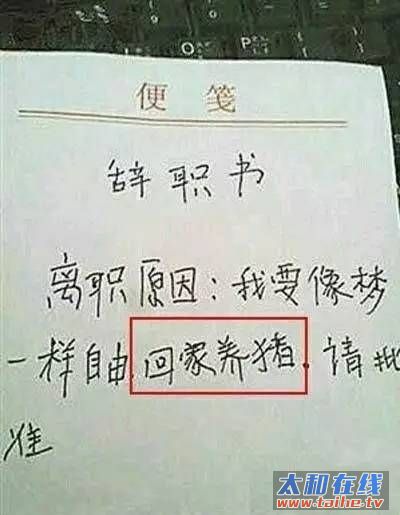 O
P
便笺
辞职书
离职原因:我要像梦
一样自由.回家养猪.请批
准
太和在线
www.taihe.tv